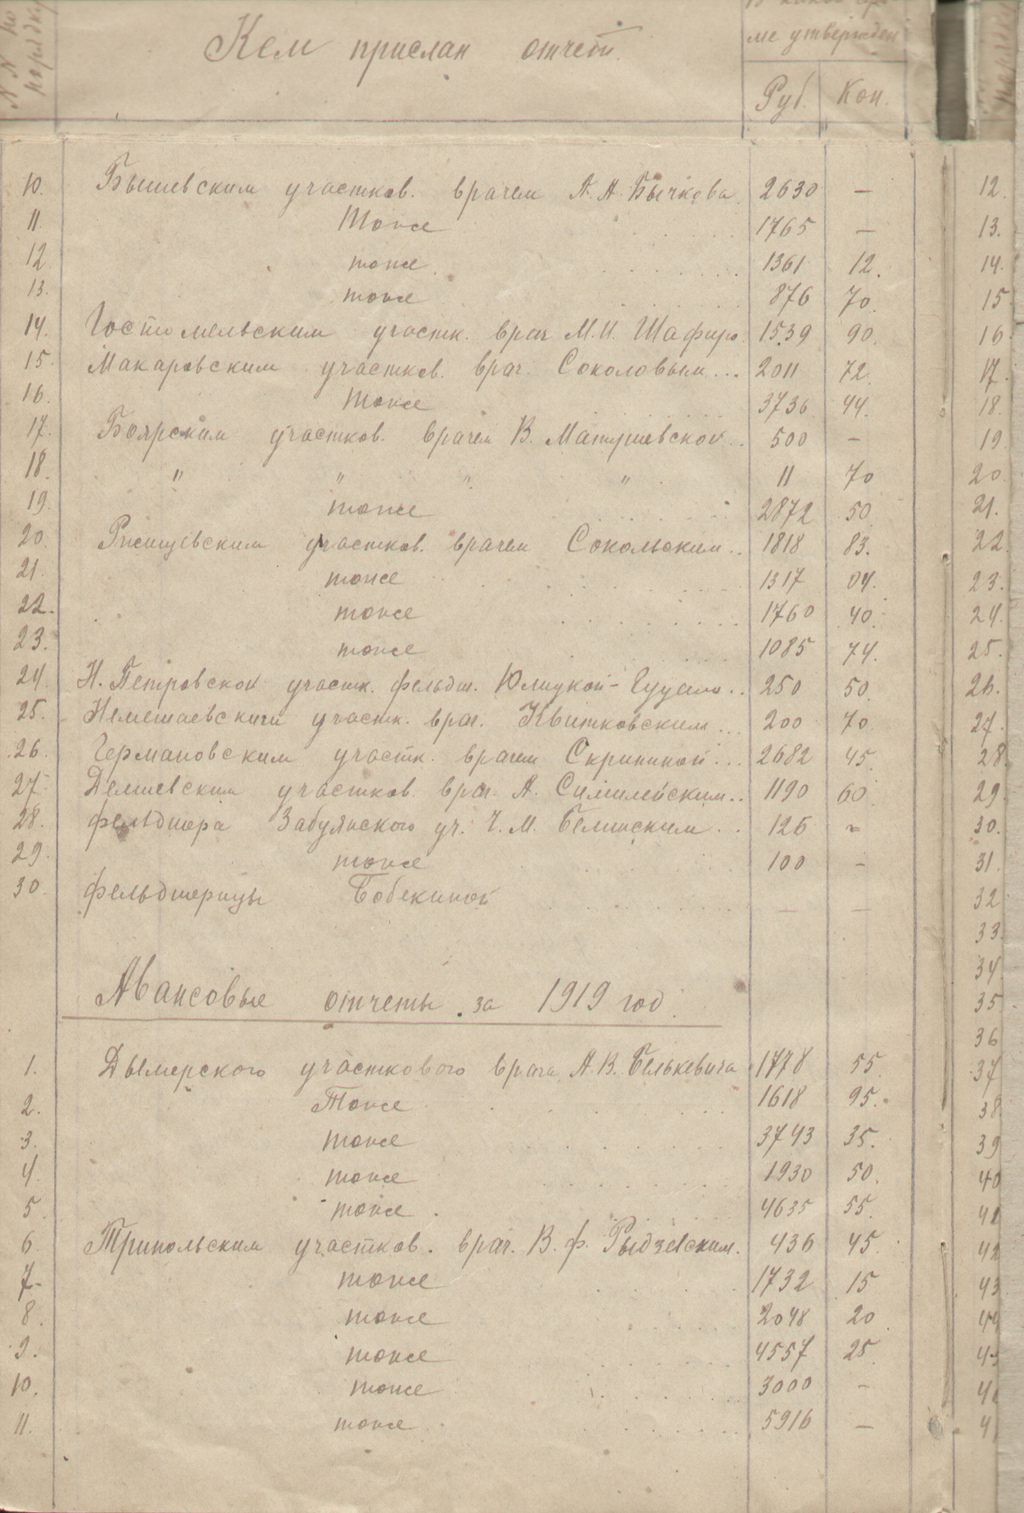 N N по порядку
Кем прислан отчет.
ме утвержден
Руб. Коп.
10. Бышевским участков. врачем А. А. Бычкова 2630 — 12.
11. Тоже 1765 — 13.
12. тоже 1361 12. 14.
13. тоже 876 70. 15
14. Гостомельским участк. врач М. И. Шафир. 1539 90. 16
15. Макаровским участков. врач. Соколовым... 2011 72. 17.
16. тоже 3736 44. 18.
17. Боярским участков. врачем В. Матушевской.. 500 — 19
18. " " " " 11 70 20
19. тоже 2872 50 21.
20. Ржищевским участков. врачем Сокольским.. 1818 83. 22
21. тоже 1317 04. 23.
22. тоже 1760 40. 24.
23. тоже 1085 74. 25.
24. Н. Петровской участк. фельдш. 250 50. 26.
25. Немешаевским участк. врач. Квитковским... 200 70 27.
26. Германовским участк. врачем Скрипиной... 2682 45. 28
27. Демиевским участков. врач. А. 1190 60 29
28. фельдшера Забуянского уч. Ч. М. Белинским... 126 ~ 30.
29. тоже 100 — 31.
30. фельдшерицы Бобекиной — — 32
33
34.
Авансовые отчеты за 1919 год. 35
36
1. Дымерского участкового врача А. В. Белькевича 1778 55. 37
2. Тоже 1618 95. 38
3. тоже 3743 35. 39
4. тоже 1930 50. 40
5. тоже 4635 55.
6 Трипольским участков. врач. В. Ф. Рыдзевским. 436 45. 42
7. тоже 1732 15 43
8. тоже 2048 20 44
9. тоже 4557 25
10. тоже 3000 —
11. тоже 5916 —